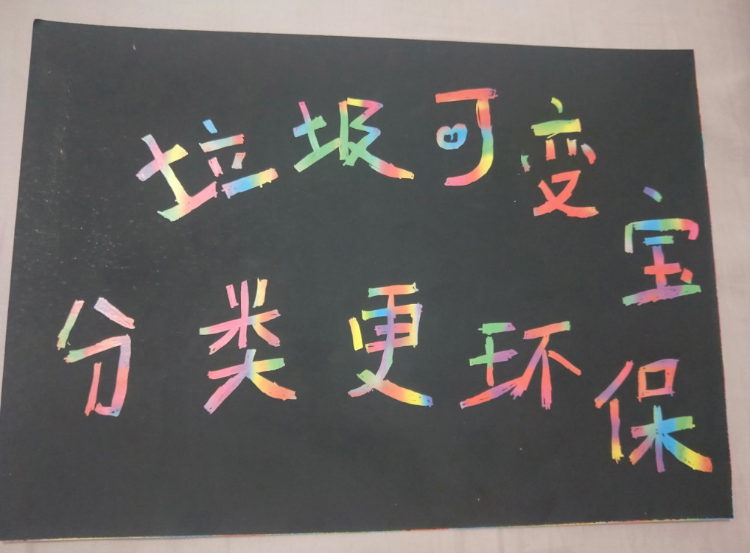 垃圾可变宝
分类更环保